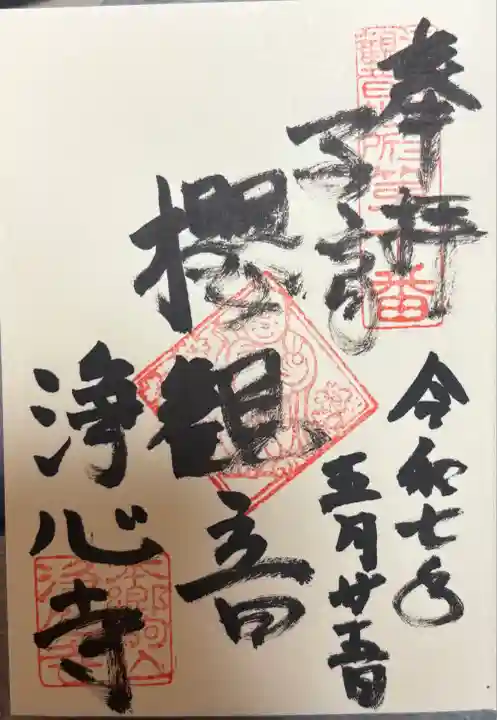 奉拝
令和七年
五月廿五日
子育
櫻観音
浄心寺